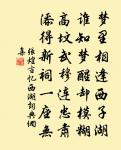 梦里相逢西子湖
谁知梦醒却模糊
高坟武穆连忠肃
添得新祠一座无
张煌言忆西湖词典调集